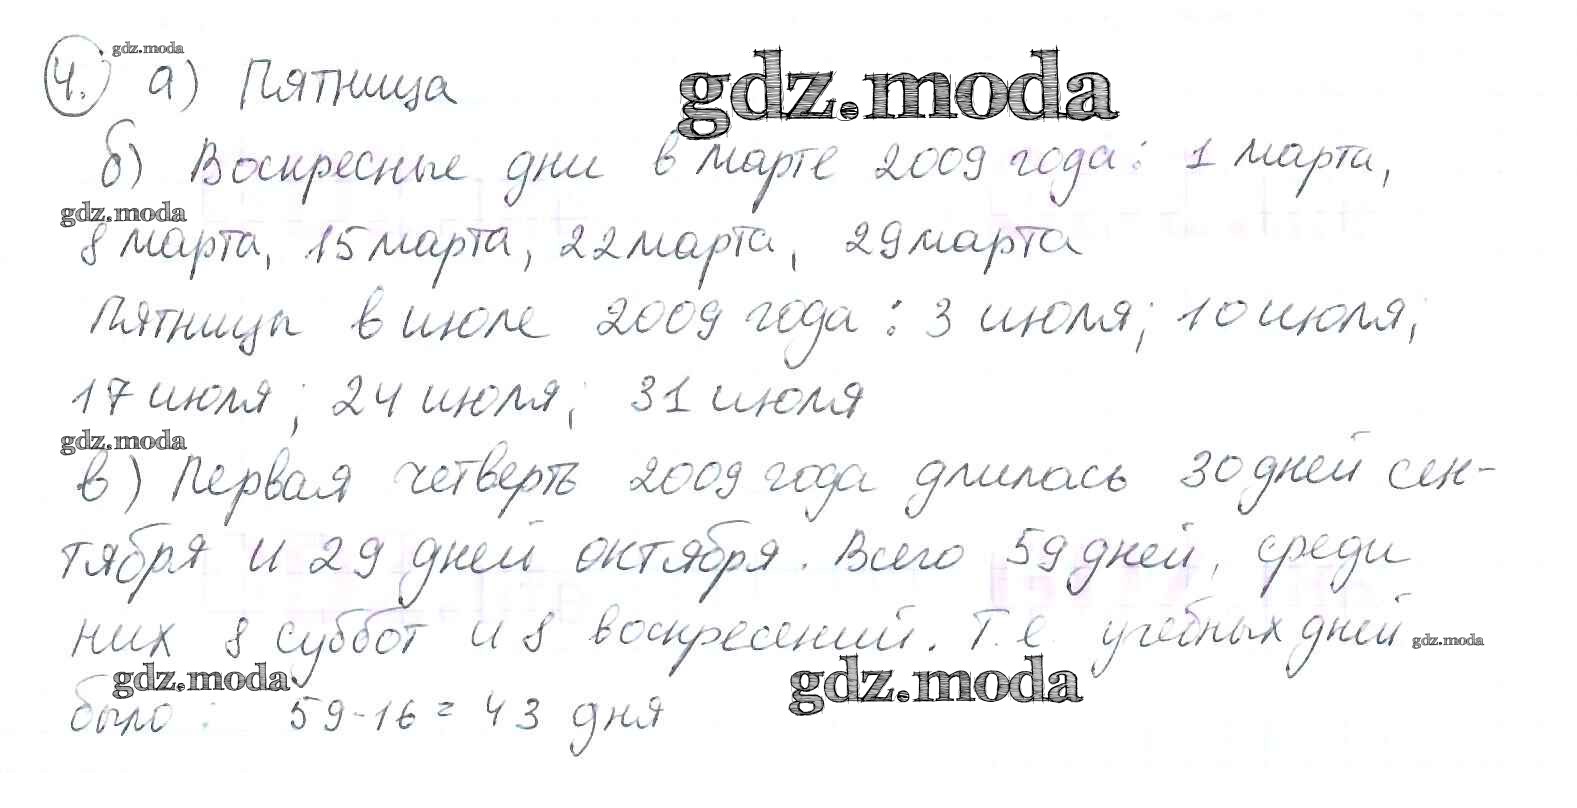 gdz.moda
4. а) Пятница
gdz.moda
б) Воскресные дни в марте 2009 года: 1 марта,
gdz.moda
8 марта, 15 марта, 22 марта, 29 марта
Пятницы в июле 2009 года: 3 июля; 10 июля;
17 июля; 24 июля; 31 июля
gdz.moda
в) Первая четверть 2009 года длилась 30 дней сен-
тября и 29 дней октября. Всего 59 дней, среди
них 8 суббот и 8 воскресений. Т.е. учебных дней
gdz.moda
gdz.moda
gdz.moda
было: 59-16=43 дня